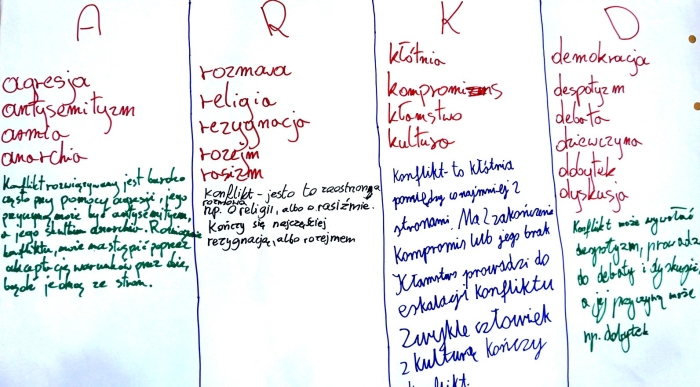 A
agresja
antysemityzm
armia
anarchia
Konflikt rozwiązywany jest bardzo
często przy pomocy agresji, jego
przyczyną może być antysemityzm,
a jego skutkiem anarchia. Rozwiązanie
konfliktu, może nastąpić poprzez
akceptację warunków przez dwie,
bądź jedną ze stron.
R
rozmowa
religia
rezygnacja
rozejm
rasizm
Konflikt - jest to zaostrzona
rozmowa
np. o religii, albo o rasiźmie.
Kończy się najczęściej
rezygnacją, albo rozejmem
K
kłótnia
kompromis
kłamstwo
kultura
Konflikt - to kłótnia
pomiędzy conajmniej 2
stronami. Ma 2 zakończenia
Kompromis lub jego brak
Kłamstwo prowadzi do
eskalacji konfliktu
Zwykle człowiek
z kulturą kończy
D
demokracja
despotyzm
debata
dziewczyna
dobytek
dyskusja
Konflikt może wywołać
despotyzm, prowadzi
do debaty i dyskusji,
a jej przyczyną może
np. dobytek